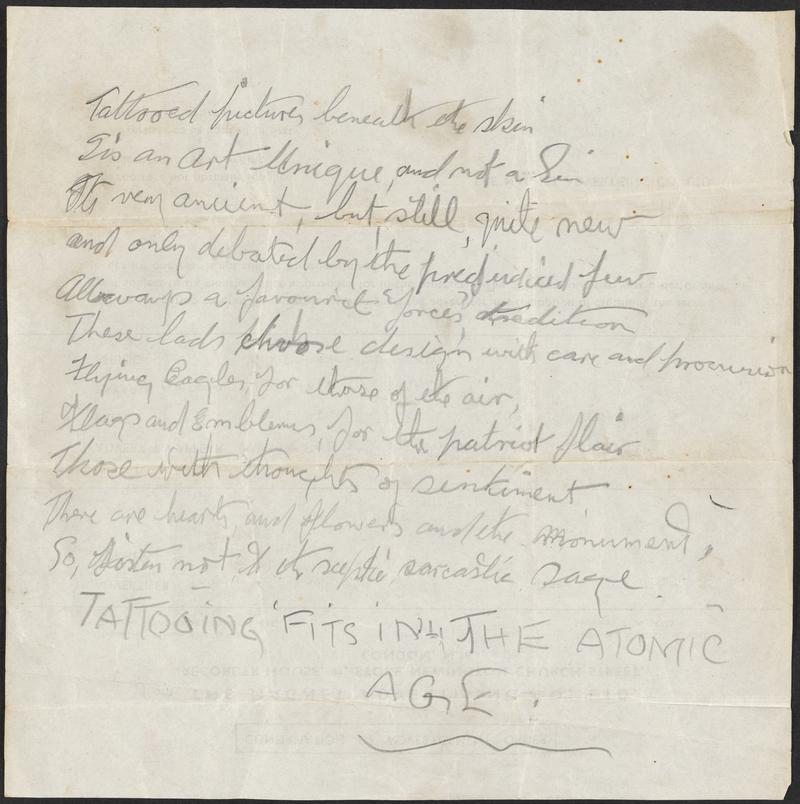 Tattooed pictures beneath the skin
Tis an Art Unique, and not a Sin
Its very ancient, but, still, quite new
and only debated by the predjudiced few
Allways a favourite "forces" tradition
These lads choose design with care and procusion
Flying Eagles, for those of the air,
Flags and Emblems, for the patriot flair
Those with thoughts of sentiment
There are hearts, and flowers and the Monument,
So, listen not, to the septic, sarcastic, sage.
TATTOOING FITS IN THE ATOMIC
AGE.